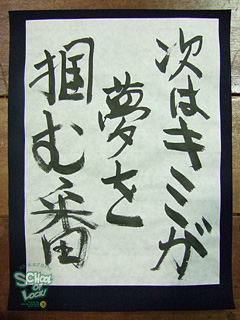 次はキミが
夢を
掴む番
SCHOOL
OF
LOCK!